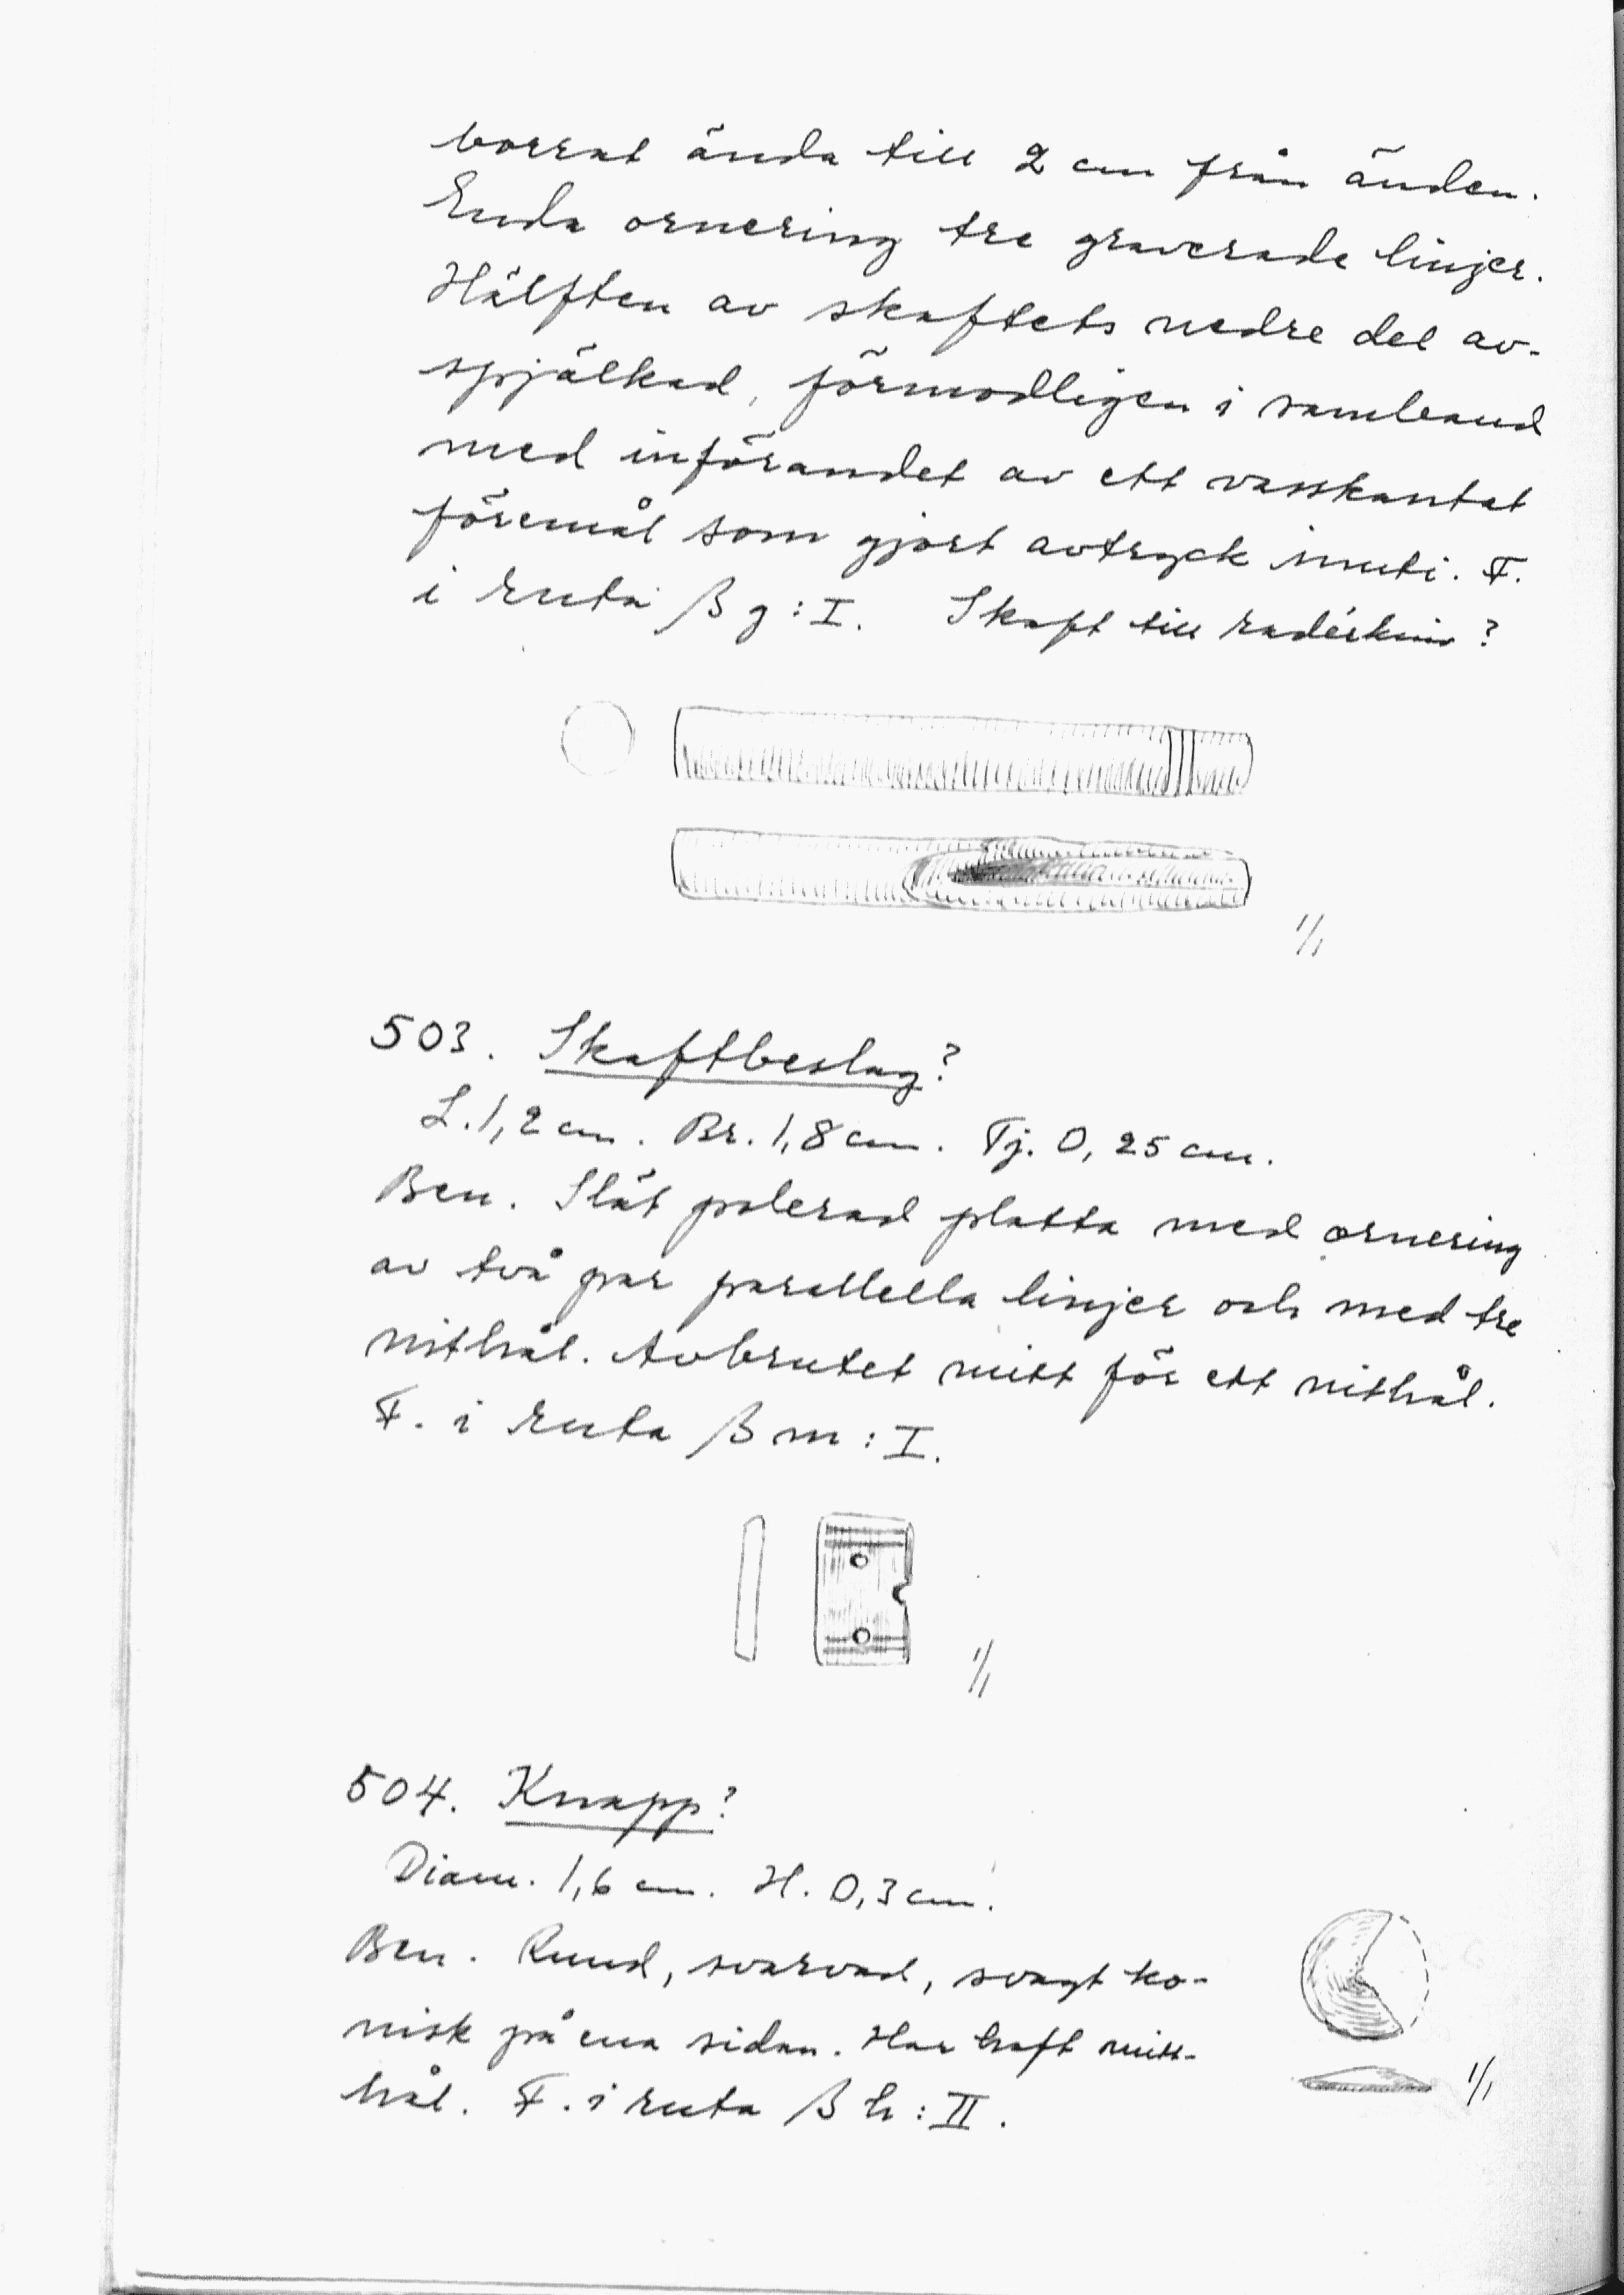 borrat ända till 2 cm från änden.
Enda ornering tre graverade linjer.
Hälften av skaftets nedre del av-
spjälkad, förmodligen i samband
med införandet av ett vasskantat
föremål som gjort avtryck inuti. F.
i ruta β g : I. Skaft till raderkniv ?
1/1
503. Skaftbeslag?
L. 1,2 cm. Br. 1,8 cm. Tj. 0,25 cm.
Ben. Slät polerad platta med ornering
av två par parallella linjer och med tre
nithål. Avbrutet mitt för ett nithål.
F. i ruta β m : I.
1/1
504. Knapp?
Diam. 1,6 cm. H. 0,3 cm.
Ben. Rund, svarvad, svagt ko-
nisk på ena sidan. Har haft mitt-
hål. F. i ruta β h : II.
1/1